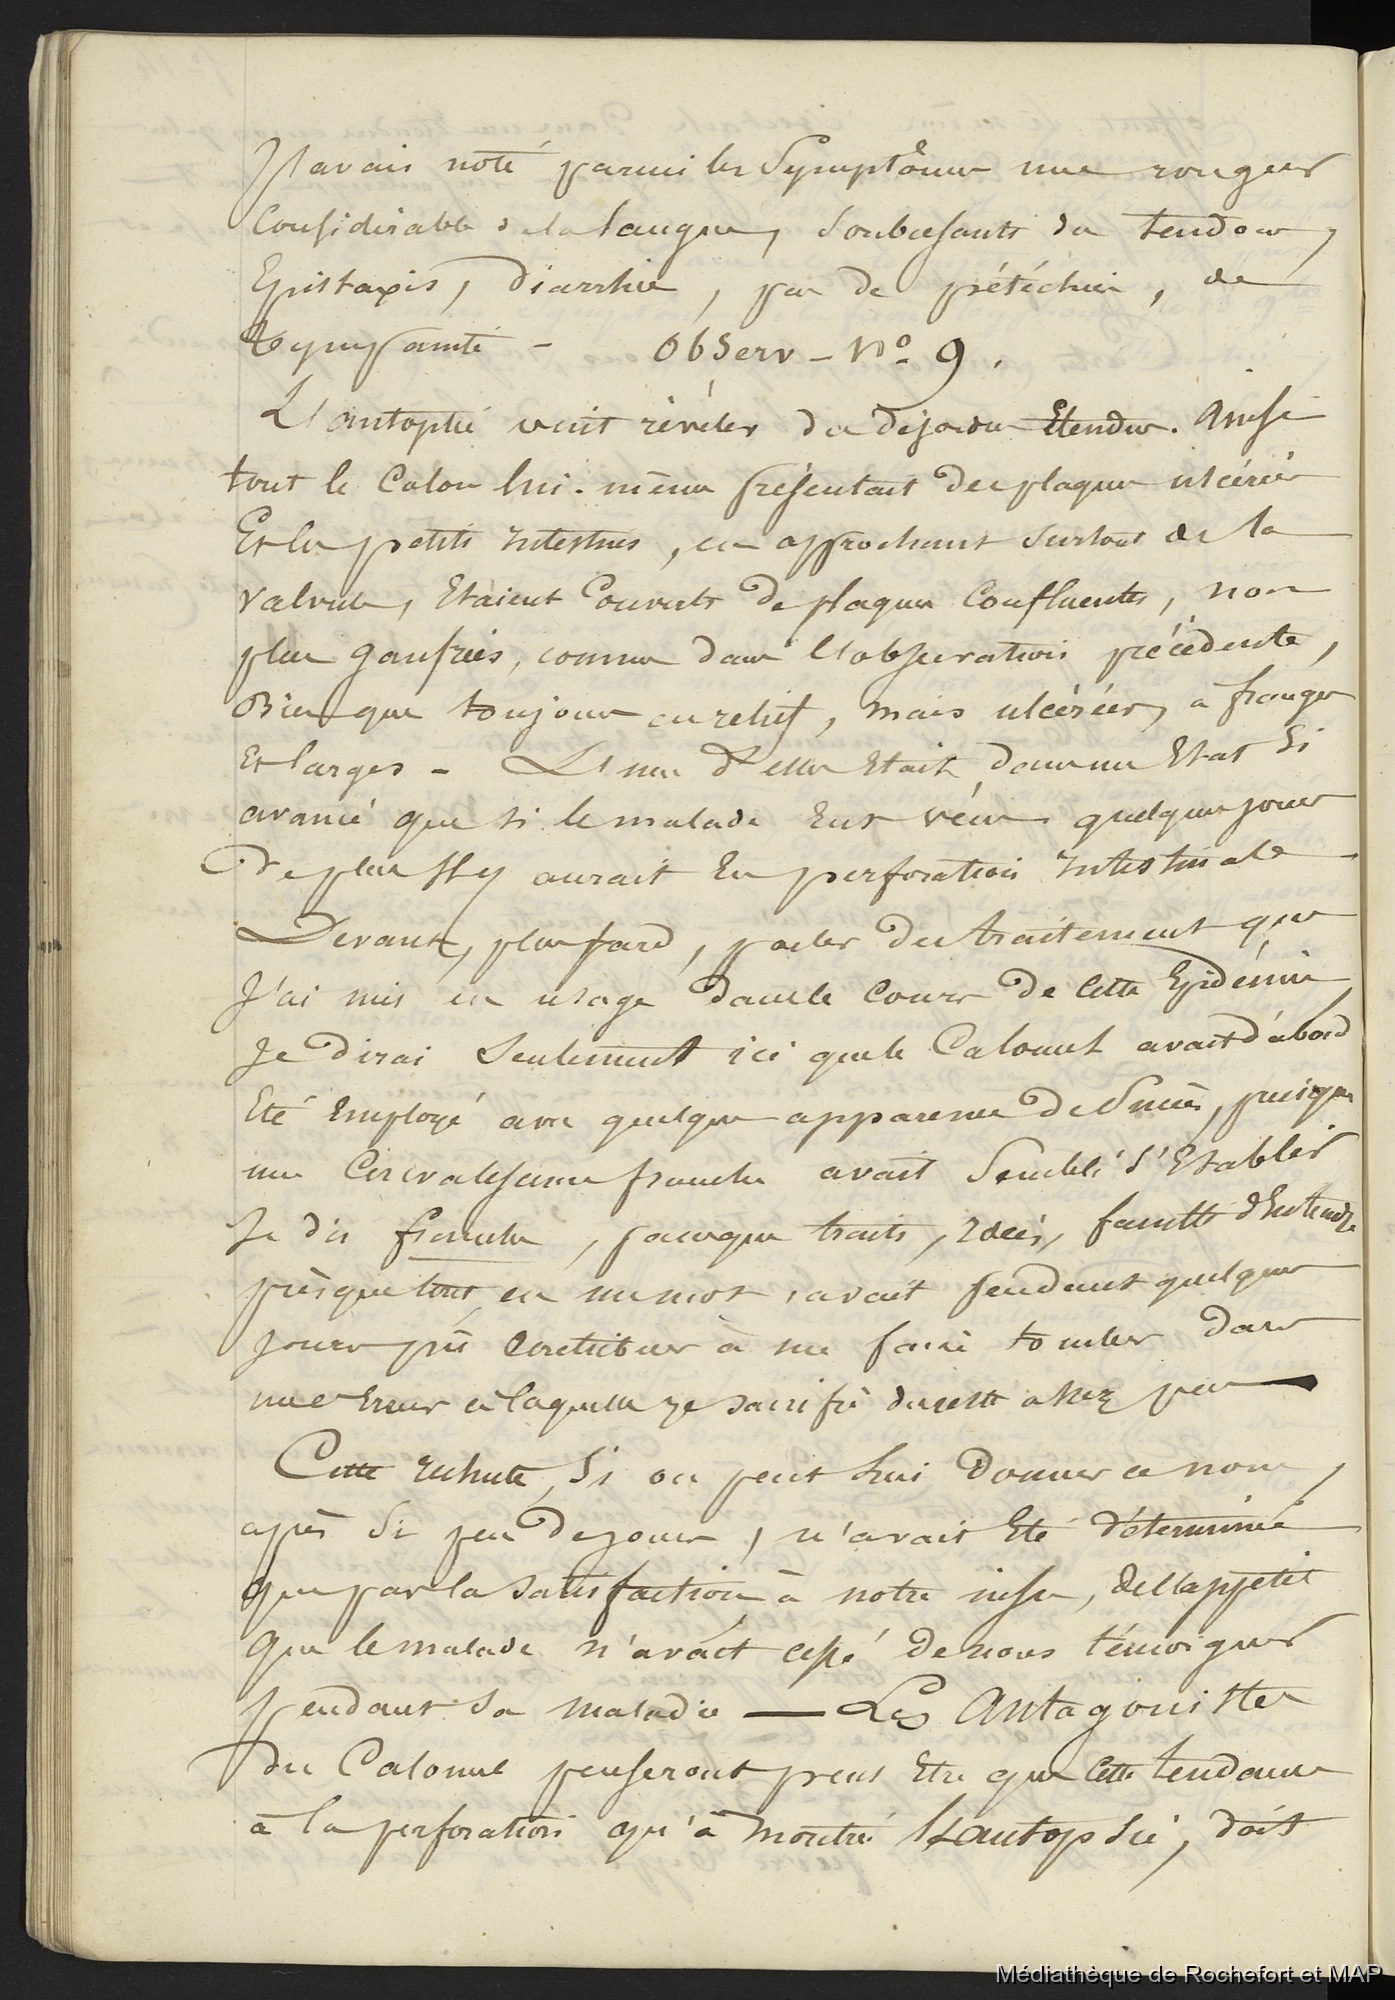 J'avais noté parmi les Symptômes une rougeur
Considérable de la langue, Soubresauts des tendons,
Epistaxis, Diarrhée, pas de pétéchies, de
tympanite - Observ - No. 9.
L'autopsie vint révéler des dégats Etendus. Ainsi
tout le Colon lui-même présentait des plaques ulcérées
Et les petits intestins, en approchant Surtout de la
Valvule, Etaient Couverts de plaques Confluentes, non
plus gaufrées, comme dans l'observation précédente,
Bien que toujours en relief, mais ulcérées, à franges
Et larges - L'une d'elles était dans un Etat Si
avancé que si le malade Eut vécu quelques jours
De plus Il y aurait Eu perforation intestinale
Devant, plus tard, parler du traitement que
J'ai mis en usage dans le Cours de Cette Epidémie
Je dirai Seulement ici que le Calomel avait d'abord
Eté Employé avec quelque apparence de Succès, puisque
une Convalescence franche avait Semblé S'Etablir
Je dis franche, parceque traits, idées, facultés d'Entendre
prèsque tout, en un mot, avait pendant quelques
Jours pu Contribuer à me faire tomber dans
une Erreur à laquelle je sacrifie du reste assez peu
Cette rechute, Si on peut lui Donner ce nom,
après Si peu de jours, n'avait Eté déterminée
que par la Satisfaction à notre insu, de l'appétit
Que le malade n'avait cessé de nous témoigner
pendant Sa maladie — Les Antagonistes
du Calomel penseront peut Etre que Cette tendance
à la perforation qu'à montré L'autopsie, doit
Médiathèque de Rochefort et MAP